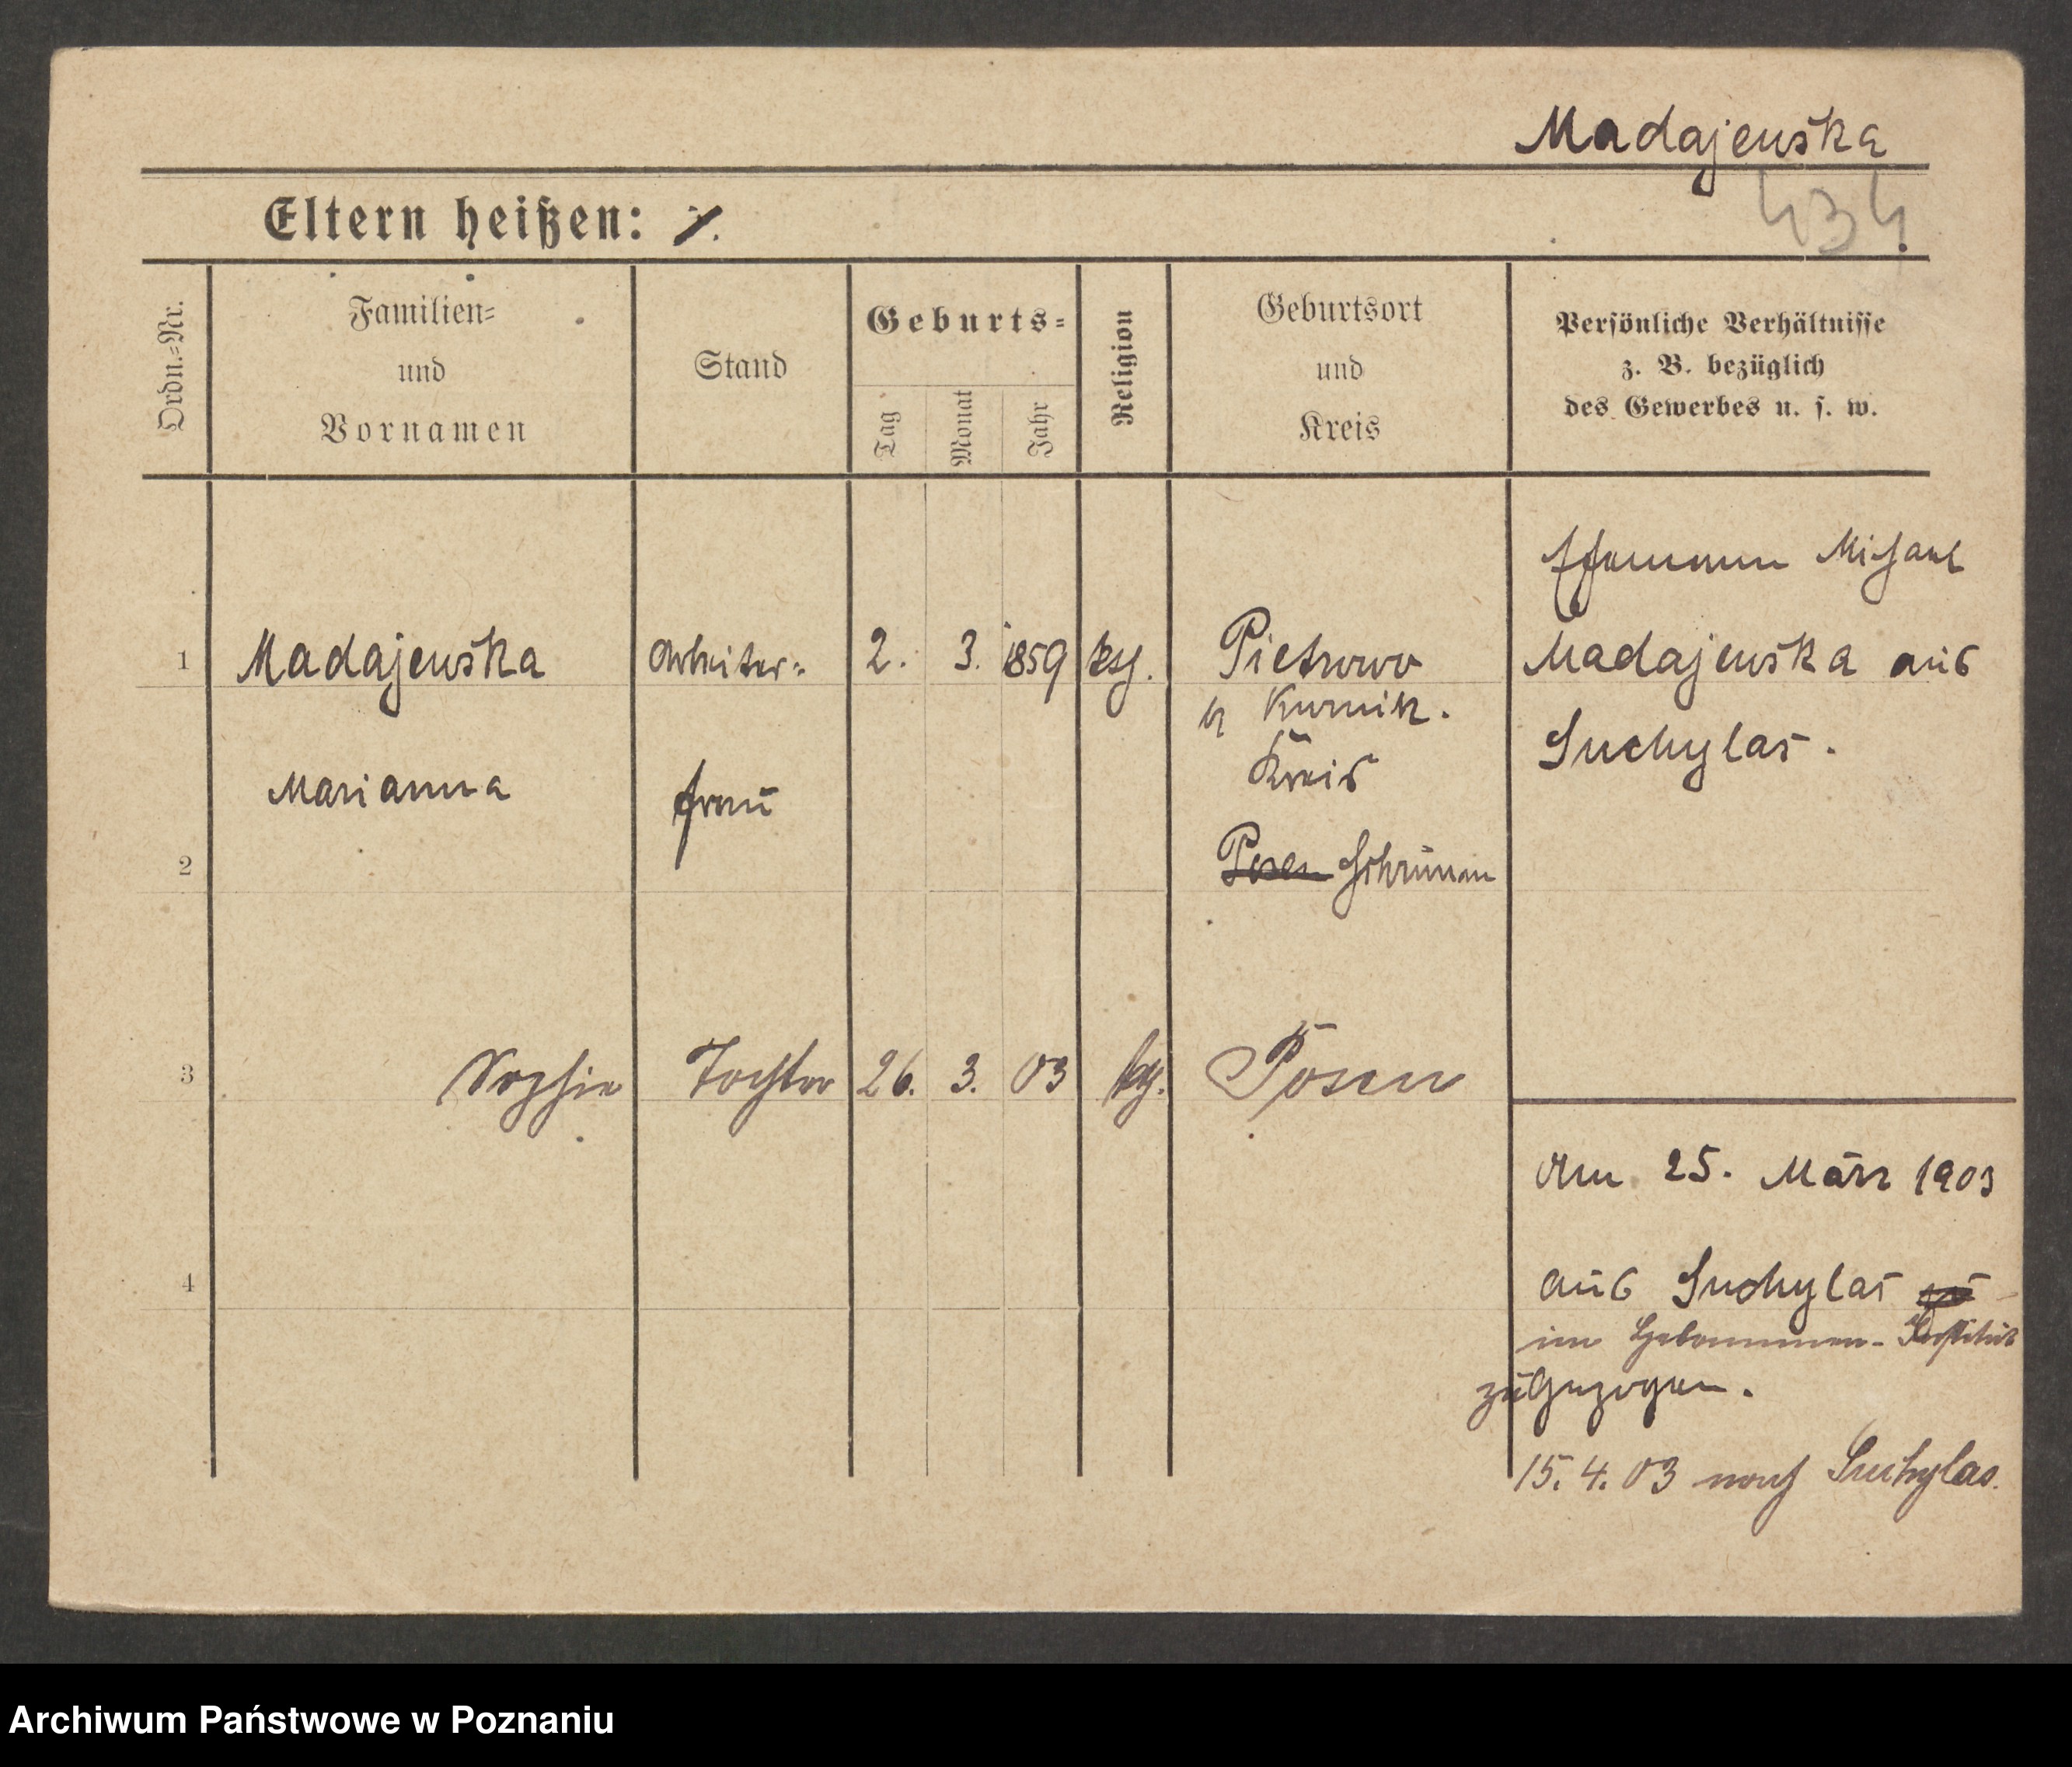 Madajewska
434
Eltern heißen: ⁒
Ordn.=Nr.
Familien=
und
Vornamen
Stand
Geburts=
Tag
Monat
Jahr
Religion
Geburtsort
und
Kreis
Persönliche Verhältnisse
z. B. bezüglich
des Gewerbes u. s. w.
Ehemann Michael
1 Madajewska Arbeiter= 2. 3. 1859 ktg. Pietrowo Madajewska aus
b Kurnik.
Suchylas.
Kreis
Marianna frau
2 Posen Schrimm
3 Sophie Tochter 26. 3. 03 ktg. Posen
Am 25. März 1903
4 aus Suchylas zu
im Hebammen-Institut
zugezogen.
15.4.03 nach Suchylas.
Archiwum Państwowe w Poznaniu